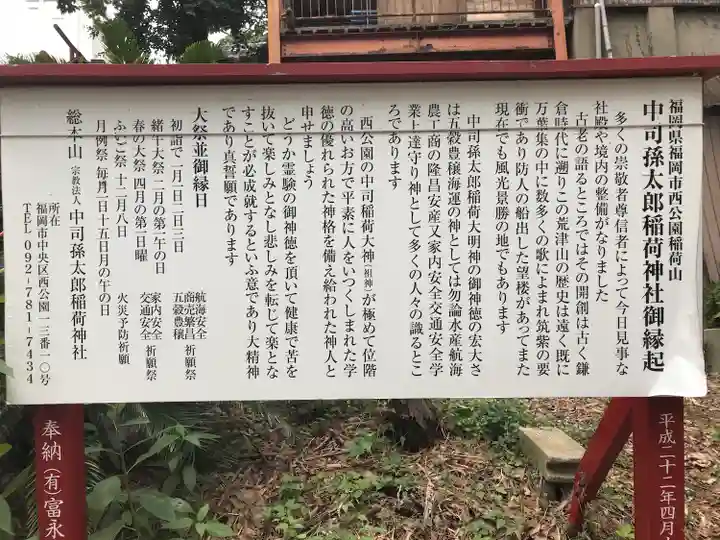 福岡県福岡市西公園稲荷山
中司孫太郎稲荷神社御縁起
多くの崇敬者尊信者によって今日見事な
社殿や境内の整備がなりました
古老の語るところではその開創は古く鎌
倉時代に遡りこの荒津山の歴史は遠く既に
万葉集の中に数多くの歌によまれ筑紫の要
衝であり防人の船出した望楼があってまた
現在でも風光景勝の地でもあります
中司孫太郎稲荷大明神の御神徳の宏大さ
は五穀豊穣海運の神としては勿論水産航海
農工商の隆昌安産又家内安全交通安全学
業上達守り神として多くの人々の識るとこ
ろであります
西公園の中司稲荷大神(祖神)が極めて位階
の高いお方で平素に人をいつくしまれた学
徳の優れられた神格を備え給われた神人と
申せましょう
どうか霊験の御神徳を頂いて健康で苦を
抜いて楽しみとなし悲しみを転じて楽とな
すことが必成就するといふ意であり大精神
であり真誓願であります
大祭並御縁日
初詣で 一月一日二日三日 航海安全 商売繁昌 五穀豊穣 祈願祭
緒午大祭 二月の第一午の日 家内安全 交通安全 祈願祭
春の大祭 四月の第二日曜
ふいご祭 十二月八日 火災予防祈願
月例祭 毎月一日十五日月の午の日
総本山 宗教法人 中司孫太郎稲荷神社
所在
福岡市中央区西公園一三番一〇号
TEL 092-781-7434
平成二十二年四月
奉納(有)富永